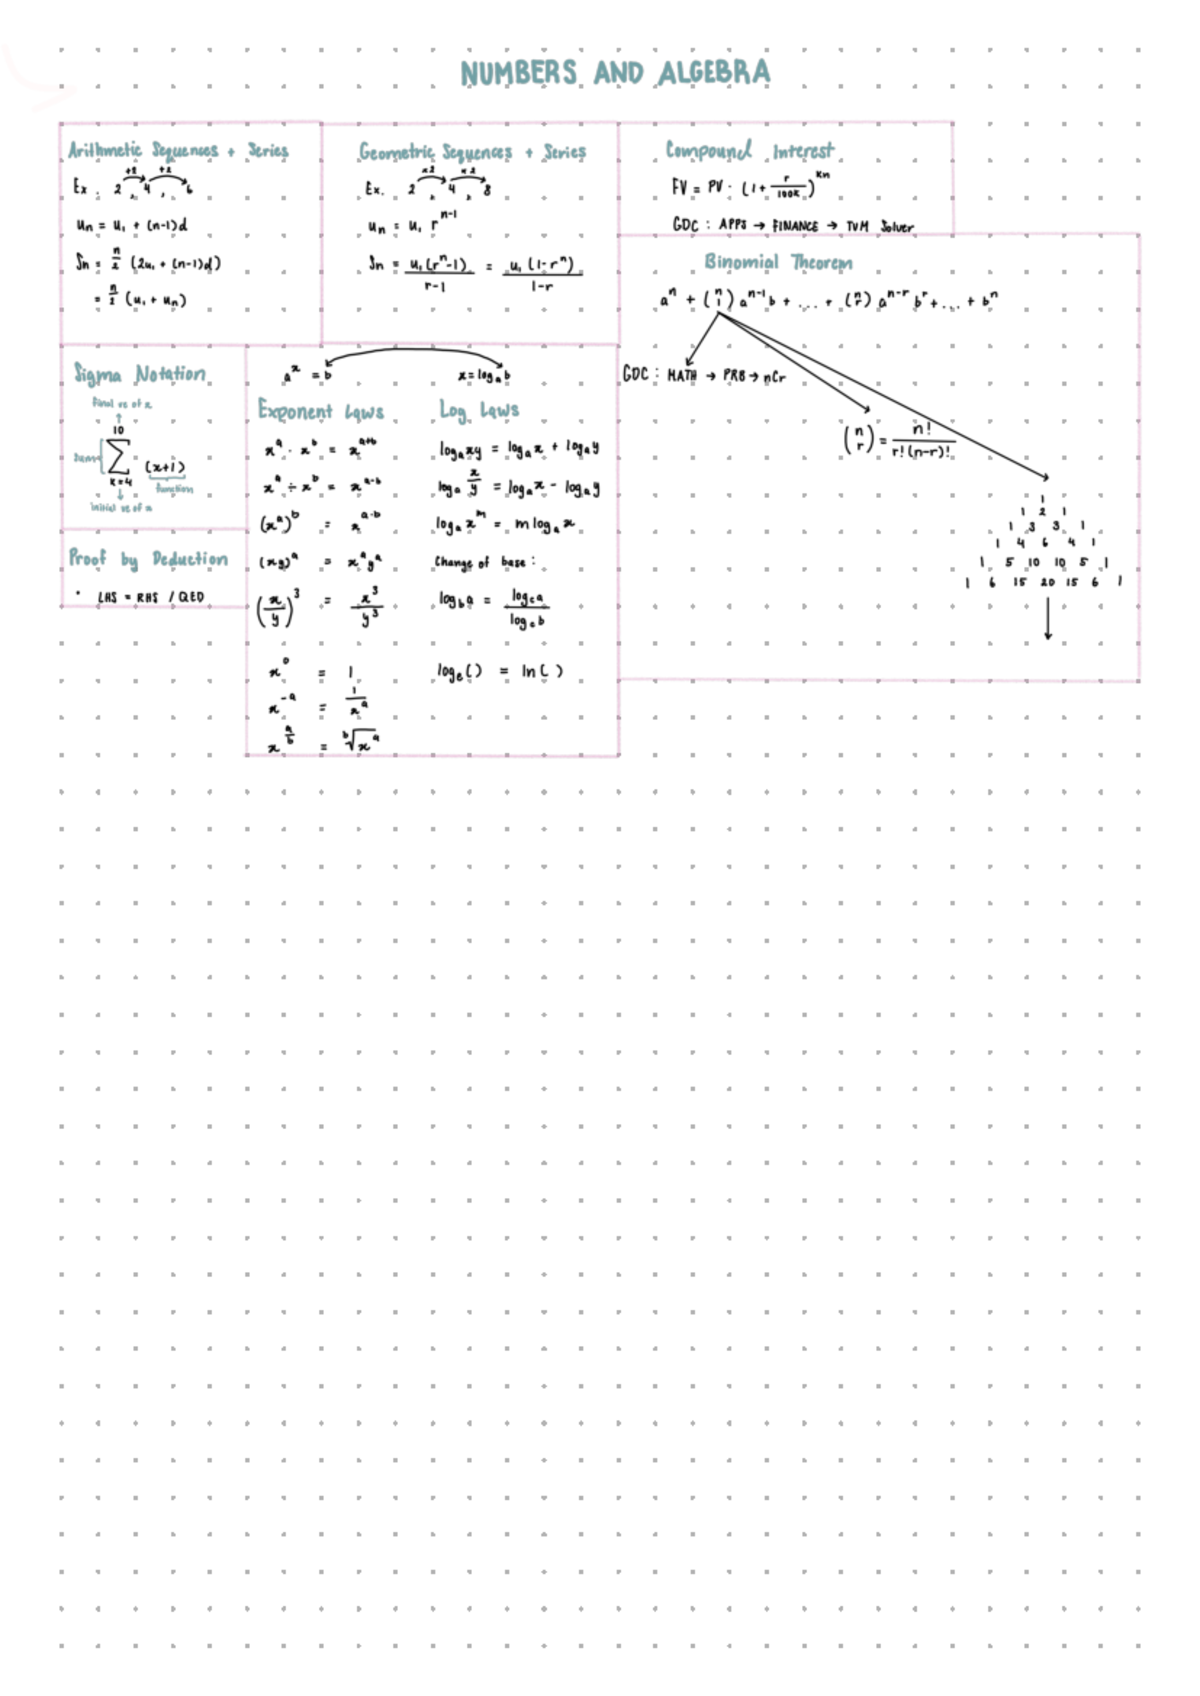 NUMBERS AND ALGEBRA
Arithmetic Sequences + Series
+2 +2
Ex. 2, 4, 6
uₙ = u₁ + (n-1)d
Sₙ = n/2 (2u₁ + (n-1)d)
= n/2 (u₁ + uₙ)
Geometric Sequences + Series
×2 ×2
Ex. 2, 4, 8
uₙ = u₁ r^(n-1)
Sₙ = u₁(rⁿ-1)/(r-1) = u₁(1-rⁿ)/(1-r)
Compound Interest
FV = PV · (1 + r/100k)^(kn)
GDC : APPS → FINANCE → TVM Solver
Binomial Theorem
aⁿ + (n 1) a^(n-1) b + ... + (n r) a^(n-r) b^r + ... + bⁿ
GDC : MATH → PRB → nCr
(n r) = n!/(r!(n-r)!)
1
1 2 1
1 3 3 1
1 4 6 4 1
1 5 10 10 5 1
1 6 15 20 15 6 1
Sigma Notation
final ve of x
10
Sum Σ (x+1)
k=4 function
initial ve of
Proof by Deduction
• LHS = RHS / QED
a^x = b
x = logₐb
Exponent Laws
x^a · x^b = x^(a+b)
x^a ÷ x^b = x^(a-b)
(x^a)^b = x^(a·b)
(xy)^a = x^a y^a
(x/y)^3 = x^3/y^3
x^0 = 1
x^(-a) = 1/x^a
x^(a/b) = ᵇ√x^a
Log Laws
logₐxy = logₐx + logₐy
logₐ x/y = logₐx - logₐy
logₐx^m = m logₐx
Change of base :
log_b a = log_c a / log_c b
logₑ( ) = ln( )